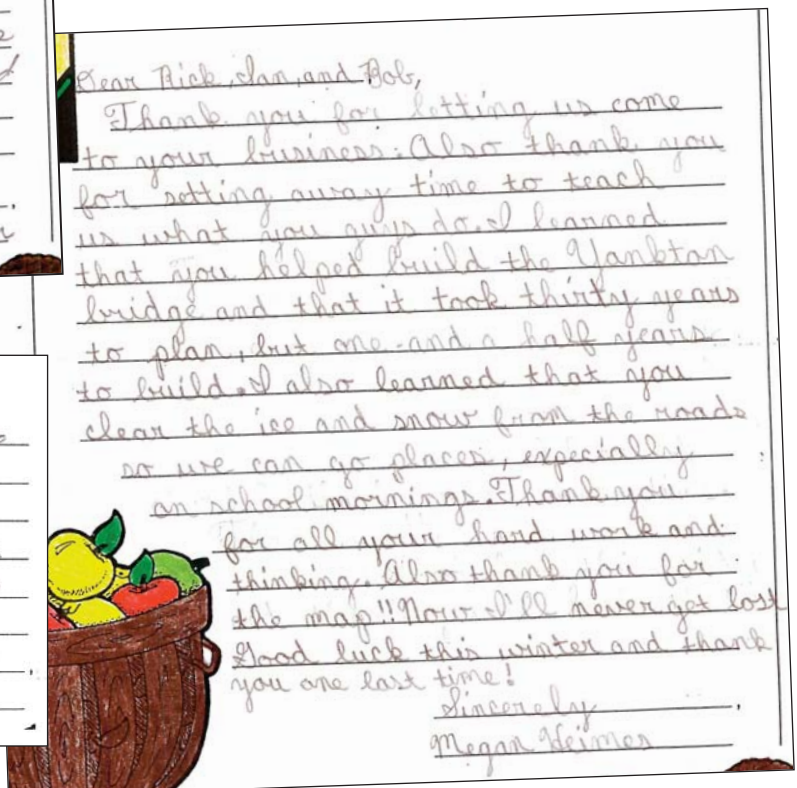 Dear Rick, Jan, and Bob,
Thank you for letting us come
to your business. Also thank you
for setting away time to teach
us what you guys do. I learned
that you helped build the Yankton
bridge and that it took thirty years
to plan, but one-and a half years
to build. I also learned that you
clear the ice and snow from the roads
so we can go places, expecially
on school mornings. Thank you
for all your hard work and
thinking. Also thank you for
the map!! Now I'll never get lost
Good luck this winter and thank
you one last time!
Sincerely,
Megan Heimes